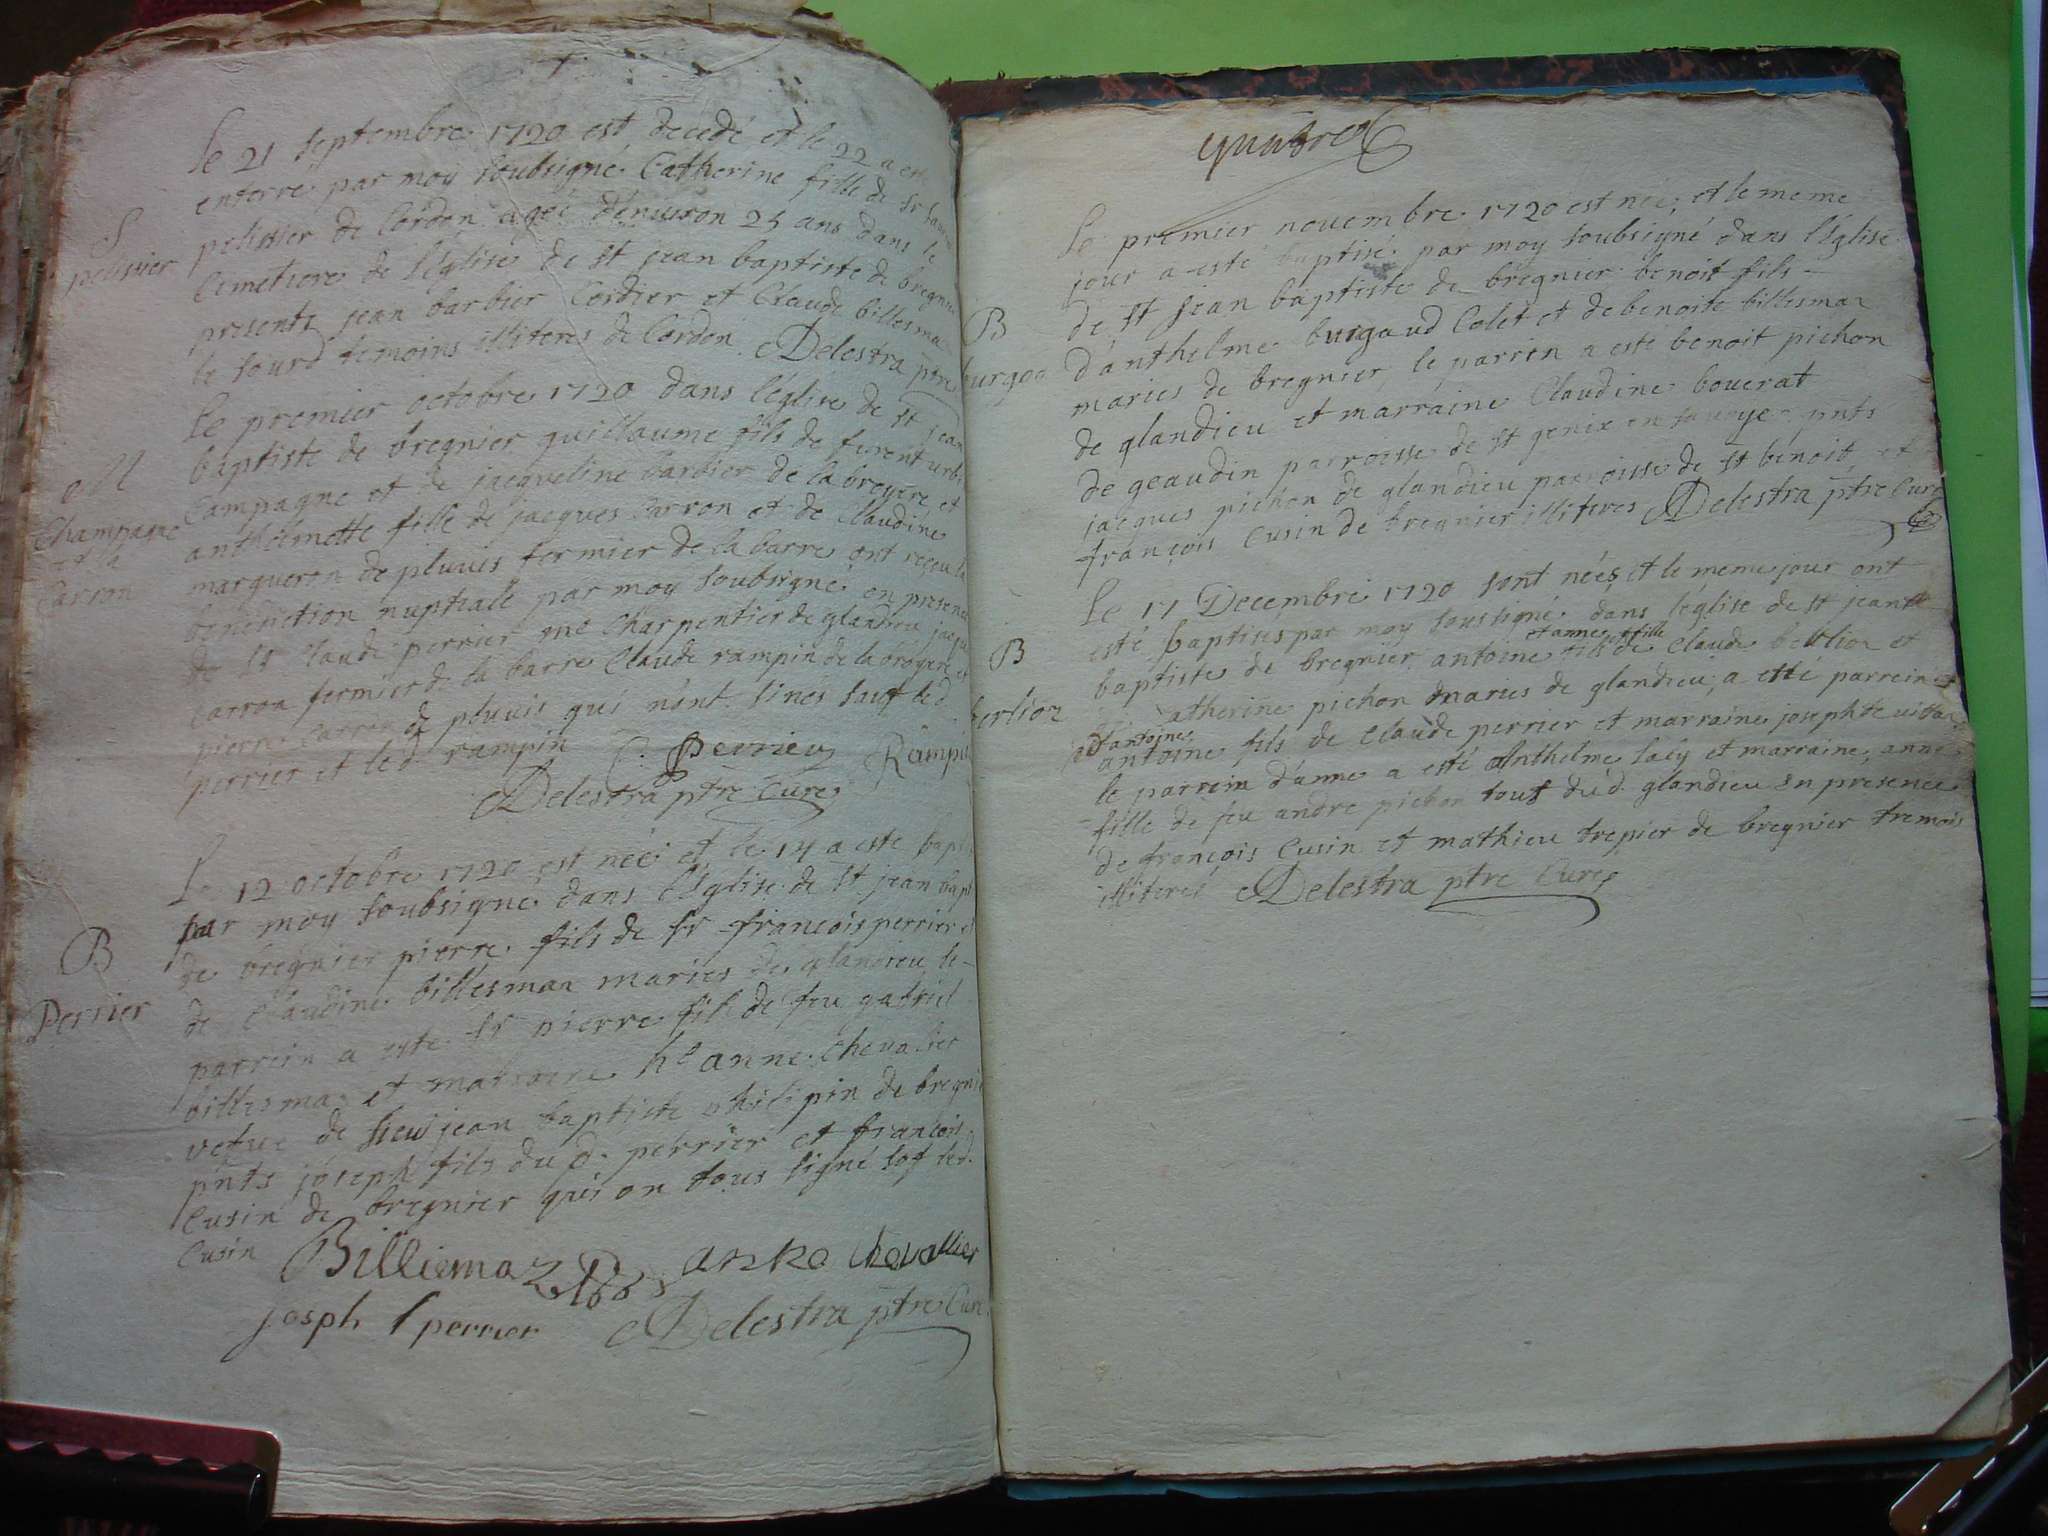 le 21 septembre 1720 est decedé et le 22 a esté
enterre par moy soubsigné Catherine fille de sr
S
pelissier
pelissier de Cordon agée d'enuiron 25 ans dans le
Cimetiere de l'église de st jean baptiste de bregnier
presents jean barbier Cordier et Claude billesmaz
le sourd temoins illiteres de Cordon Delestra ptre
le premier octobre 1720 dans l'église de st jean
M
Champagne
et la
Carron
baptiste de bregnier guillaume fils de furent urbe
Campagne et de jacqueline barbier de la broyere, et
anthelmette fille de jacques Carron et de Claudine
margueron de pluuis fermier de la barre ont reçeu la
benediction nuptiale par moy soubsigné en presence
de sr Claude perrier me Charpentier de glandieu jacque
Carron fermier de la barre Claude rampin de la broyere et
pierre Carron de pluuis qui n'ont sinés sauf led
perrier et led rampin C. Perrier Rampin
Delestra ptre Curé
Le 12 octobre 1720 est née et le 14 a esté bapt
par moy soubsigné dans l'église de st jean bapt
B
Perrier
de bregnier pierre fils de sr françois perrier et
de Claudine billesmaz maries de glandieu le
parrein a esté sr pierre fils de feu gabriel
billesmaz et marraine he anne Chevalier
vefue de sieu jean baptiste philipin de bregnier
pnts joseph fils du d. perrier et françois
Cusin de bregnier qui on tous signé sof led.
Cusin Billiemaz anne Chevallier
joseph perrier Delestra ptre Curé
Le premier nouembre 1720 est née, et le meme
jour a esté baptisé par moy soubsigné dans l'église
B
burgod
de st jean baptiste de bregnier benoit fils
d'anthelme burgaud Colet et de benoite billesmaz
maries de bregnier, le parrin a esté benoit pichon
de glandieu et marraine Claudine bouerat
de geaudin parroesse de st genix en sauoye pnts
jacques pichon de glandieu parroisse de st benoit, et
françois Cusin de bregnier illiteres Delestra ptre Curé
Le 17 Decembre 1720 sont nées et le meme jour ont
esté baptises par moy soussigné dans l'église de st jean
B
berlioz
et anne fille
baptiste de bregnier antoine fils de Claude berlioz et
Catherine pichon maries de glandieu, a esté parrein
d'antoine
antoine fils de Claude perrier et marraine josephte
le parrein d'anne a esté Anthelme lacy et marraine, anne
fille de feu andre pichon tous dud. glandieu en presence
de françois Cusin et mathieu trepier de bregnier tremois
illiteres Delestra ptre Curé